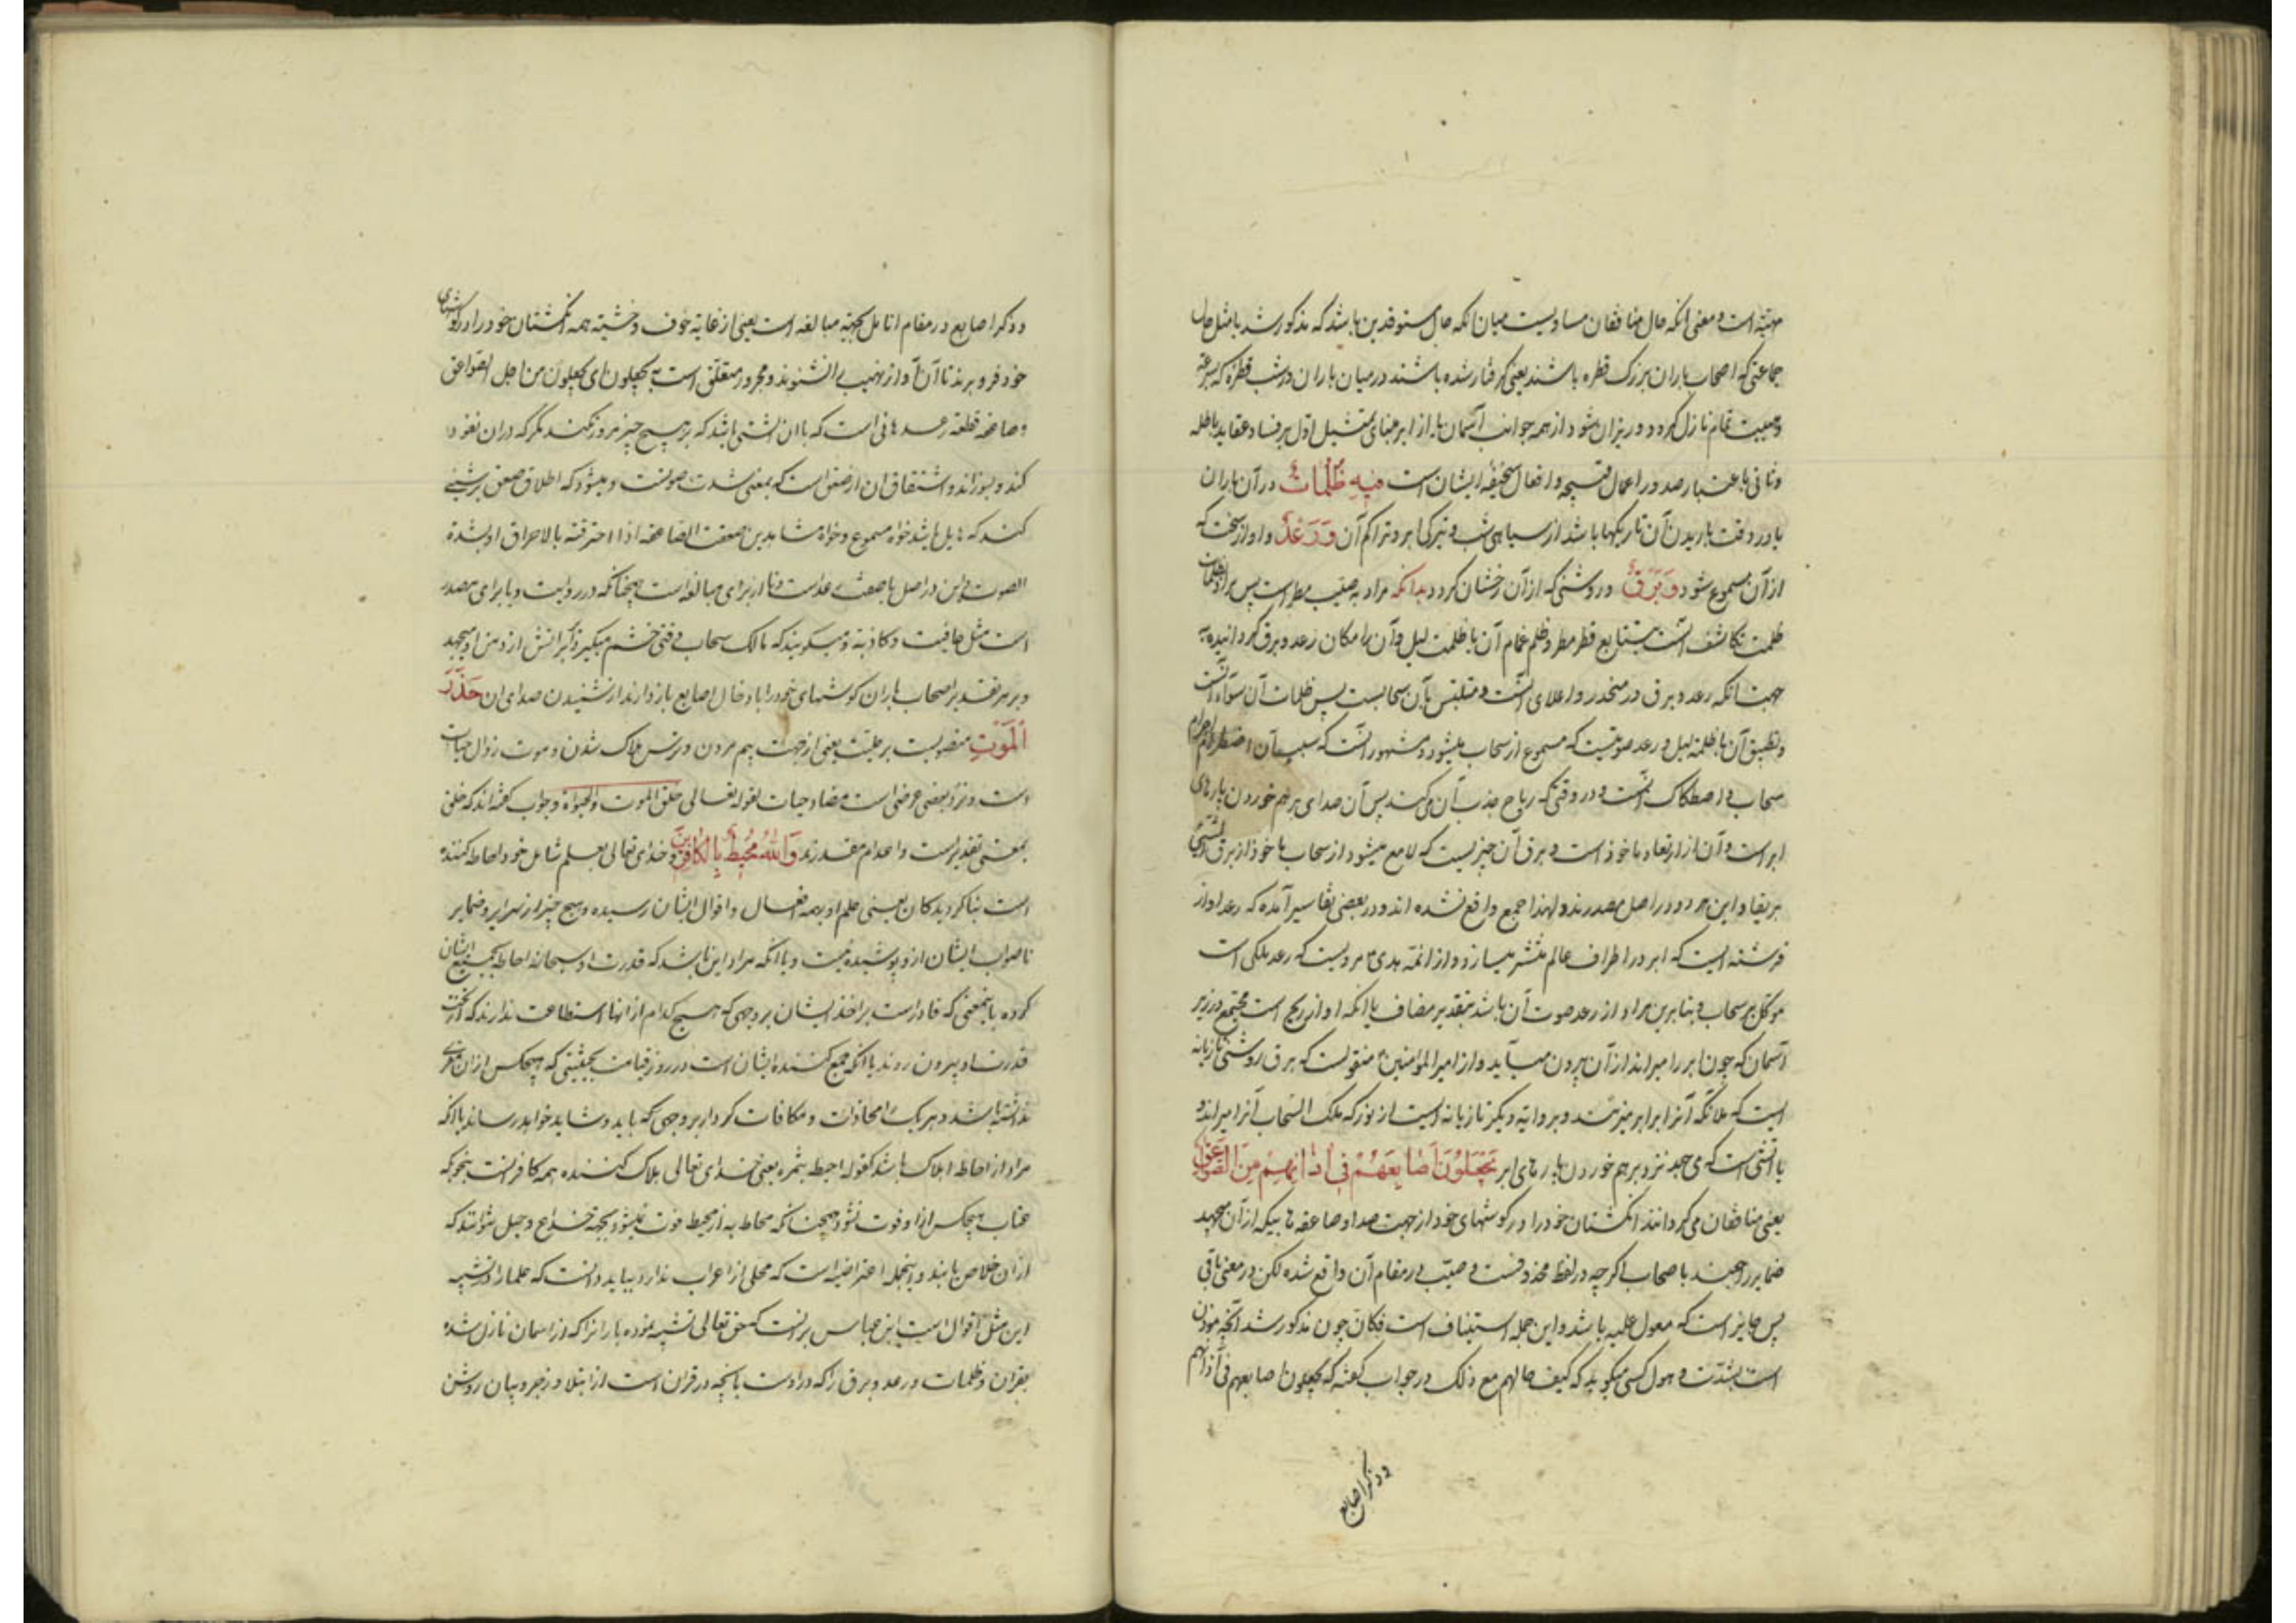 مهتبه است و معنی آنکه حال منافقان مساویست میان آنکه حال مستوقدین باشد که مذکور شد یا مثل حال
جماعتی که اصحاب باران بزرک قطره باشند یعنی گرفتار شده باشند در میان باران درشت قطره که بسرعة
و هیبت تمام نازل کردد و ریزان شود از همه جوانب آسمان یا از ابر مبنای تمثیل اول بر فساد عقاید باطله
و ثانی باعتبار صدور اعمال قبیحه و افعال سخیفه ایشان است فِیهِ ظُلُمَاتٌ در آن باران
یا در وقت باریدن آن تاریکیها باشد از سیاهی شب و تیرکی ابر و تراکم آن وَرَعْدٌ و اواز سخت که
از آن مسموع شود وَبَرْقٌ و روشنی که از آن رخشان کردد بدانکه مراد به صیب مطر است پس مراد از ظلمات
ظلمت تکاثف آنست بتتابع قطر مطر و ظلم غمام آن با ظلمت لیل و آن را مکان رعد و برق کردانیده به
جهت آنکه رعد و برق در منحدر و اعلای آنست و متلبس بآن سحابست پس ظلمات آن سواد آنست
و تطبیق آن با ظلمة لیل و رعد صوتیست که مسموع از سحاب میشود و مشهور آنست که سبب آن اضطراب اجرام
سحاب و اصطکاک آنست در وقتی که ریاح جذب آن می کند پس آن صدای بر هم خوردن پارهای
ابر است و آن از ارتعاد ماخوذ است و برق آن چیزیست که لامع میشود از سحاب ماخوذ از برق الشیئ
بریقا و این هر دو در اصل مصدرند و لهذا جمع واقع نشده اند و در بعضی تفاسیر آمده که رعد اواز
فرشته ایست که ابر در اطراف عالم منتشر میسازد و از ائمه هدی ع مرویست که رعد ملکی است
موکل بر سحاب و بنابرین مراد از رعد صوت آن باشد بتقدیر مضاف یا آنکه اواز ریح است مجتمع در زیر
آسمان که چون ابر را میراند از آن بیرون میآید و از امیرالمؤمنین ع منقولست که برق روشنی تازیانه
ایست که ملائکه آنرا بر ابر میزنند و بروایة دیگر تازیانه ایست از نور که ملک السحاب آنرا میراند و
یا آتشی است که می جهد نزد بر هم خوردن پارهای ابر یَجْعَلُونَ أَصَابِعَهُمْ فِي آذَانِهِمْ مِنَ الصَّوَاعِقِ
یعنی منافقان می کردانند انکشتان خود را در کوشهای خود از جهت صدا و صاعقه هاییکه از آن میجهد
ضمایر راجعند باصحاب اکرچه در لفظ محذوفست و صیب در مقام آن واقع شده لکن در معنی باقی
پس جایز است که معول علیه باشد و این جمله استیناف است فکان چون مذکور شد آنچه موذن
است بشدت و هول کسی میکوید که کیف حالهم مع ذلک در جواب کفته که یجعلون اصابعهم فی آذانهم
و ذکر اصابع
و ذکر اصابع در مقام انامل بجهة مبالغه است یعنی از غایة خوف و خشیة همه انکشتان خود را در کوشهای
خود فرو برند تا آن آواز نهیب را نشنوند و مجرور متعلق است به یجعلون ای یجعلون من اجل الصواعق
و صاعقه قطعة رعد هائی است که با آن آتشی باشد که بر هیچ چیز مرور نکند مکر که در آن نفوذ
کند و بسوزاند و اشتقاق ان از صعق است که بمعنی شدت صوتست و میشود که اطلاق صعق بر شیئ
کنند که هایل باشد خواه مسموع و خواه مشاهد یقال صعقت الصاعقه اذا احرقته بالاحراق او بشدة
الصوت و این در اصل یا صفت رعد است و تا از برای مبالغه است همچنانکه در روایت و یا برای مصدر
است مثل عافیت و کاذبة و میکویند که مالک سحاب وقتی خشم میکیرد بر آن آتش از دهن او میجهد
و بر هر تقدیر اصحاب باران کوشهای خود را بادخال اصابع باز دارند از شنیدن صدای ان حَذَرَ
الْمَوْتِ منصوبست بر علیت یعنی از جهت بیم مردن و ترس هلاک شدن و موت زوال حیات
است و نزد بعضی عرضی است مضاد حیات لقوله تعالی خلق الموت والحیوة و جواب کفته اند که خلق
بمعنی تقدیر است و اعدام مقدرند وَاللَّهُ مُحِیطٌ بِالْكَافِرِینَ و خدای تعالی بعلم شامل خود احاطه کننده
است بناکرویدکان یعنی علم او بهمه افعال و اقوال ایشان رسیده و هیچ چیز از سرایر و ضمایر
ناصواب ایشان از و پوشیده نیست و یا آنکه مراد این باشد که قدرت او سبحانه احاطه بجمیع ایشان
کرده باینمعنی که قادر است بر اخذ ایشان بر وجهی که هیچ کدام از آنها استطاعت ندارند که از تحت
قدرت او بیرون روند یا آنکه جمع کننده ایشان است در روز قیامت بحیثیتی که هیچکس از ان مفری
نداشته باشد و هر یک را مجازات و مکافات کردار بر وجهی که باید و شاید خواهد رساند یا آنکه
مراد از احاطه اهلاک باشد کقوله احیط بثمره یعنی خدای تعالی هلاک کننده همه کافرانست بنحویکه
عذاب هیچکس را از او فوت نشود همچنانکه محاط به از محیط فوت نمیشود بحیثه خداع و حیل نتوانند که
از ان خلاص یابند و اینجمله اعتراضیه است که محلی از اعراب ندارد بباید دانست که علما را در تشبیه
این مثل اقوال است ابن عباس بر آنست که حق تعالی تشبیه نموده بارانرا که از اسمان نازل شده
بقران و ظلمات و رعد و برق را که در اوست با آنچه در قران است از ابتلا و زجر و بیان روشن